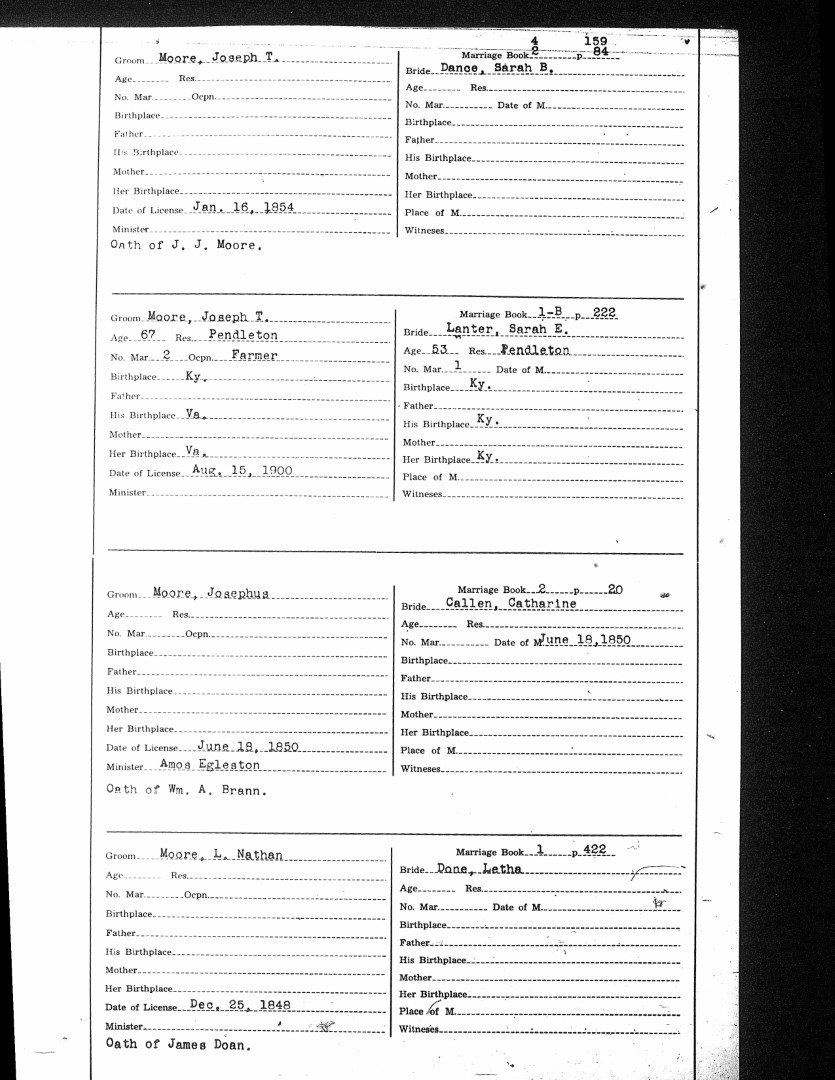 4 159
Groom Moore, Joseph T. Marriage Book 2 p. 84
Age Res. Bride Dance, Sarah B.
No. Mar. Ocpn. Age Res.
Birthplace No. Mar. Date of M.
Father Birthplace
His Birthplace Father
Mother His Birthplace
Her Birthplace Mother
Date of License Jan. 16, 1854 Her Birthplace
Minister Place of M.
Oath of J. J. Moore. Witnesses
Groom Moore, Joseph T. Marriage Book 1-B p. 222
Age 67 Res. Pendleton Bride Lanter, Sarah E.
No. Mar. 2 Ocpn. Farmer Age 53 Res. Pendleton
Birthplace Ky. No. Mar. 1 Date of M.
Father Birthplace Ky.
His Birthplace Va. Father
Mother His Birthplace Ky.
Her Birthplace Va. Mother
Date of License Aug. 15, 1900 Her Birthplace Ky.
Minister Place of M.
Witneses
Groom Moore, Josephus Marriage Book 2 p. 20
Age Res. Bride Callen, Catharine
No. Mar. Ocpn. Age Res.
Birthplace No. Mar. Date of M. June 18,1850
Father Birthplace
His Birthplace Father
Mother His Birthplace
Her Birthplace Mother
Date of License June 18, 1850 Her Birthplace
Minister Amos Egleston Place of M.
Oath of Wm. A. Brann. Witneses
Groom Moore, L. Nathan Marriage Book 1 p. 422
Age Res. Bride Done, Letha
No. Mar. Ocpn. Age Res.
Birthplace No. Mar. Date of M.
Father Birthplace
His Birthplace Father
Mother His Birthplace
Her Birthplace Mother
Date of License Dec. 25, 1848 Her Birthplace
Minister Place of M.
Oath of James Doan. Witneses